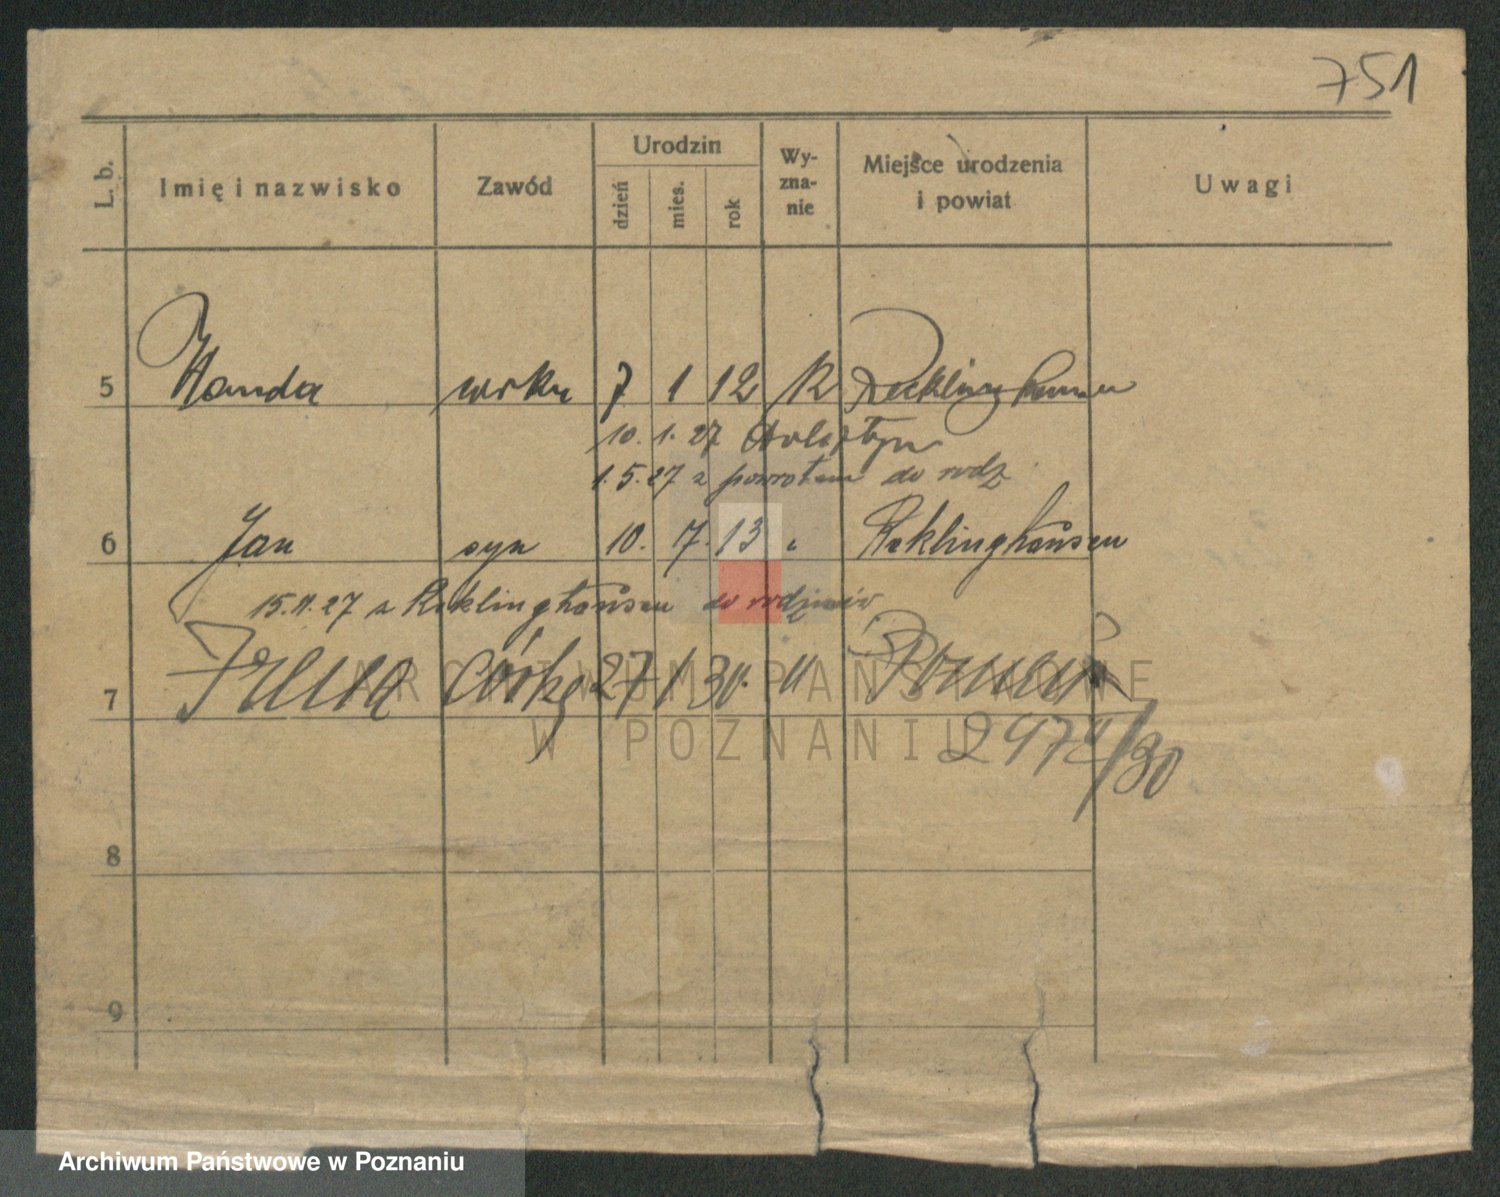 751
L. b.
Imię i nazwisko
Zawód
Urodzin
dzień
mies.
rok
Wy-
zna-
nie
Miejsce urodzenia
i powiat
Uwagi
5 Wanda 7 1 12 K Recklinghausen
10. 1. 27
1. 5. 27 z powrotem do rodz
6 Jan syn 10. 7. 13 " Reklinghausen
15.11.27 z Reklinghausen do rodziców
7 Irena córka 27 1 30. " Poznań
2974/30
8
9
ARCHIWUM PAŃSTWOWE
W POZNANIU
Archiwum Państwowe w Poznaniu